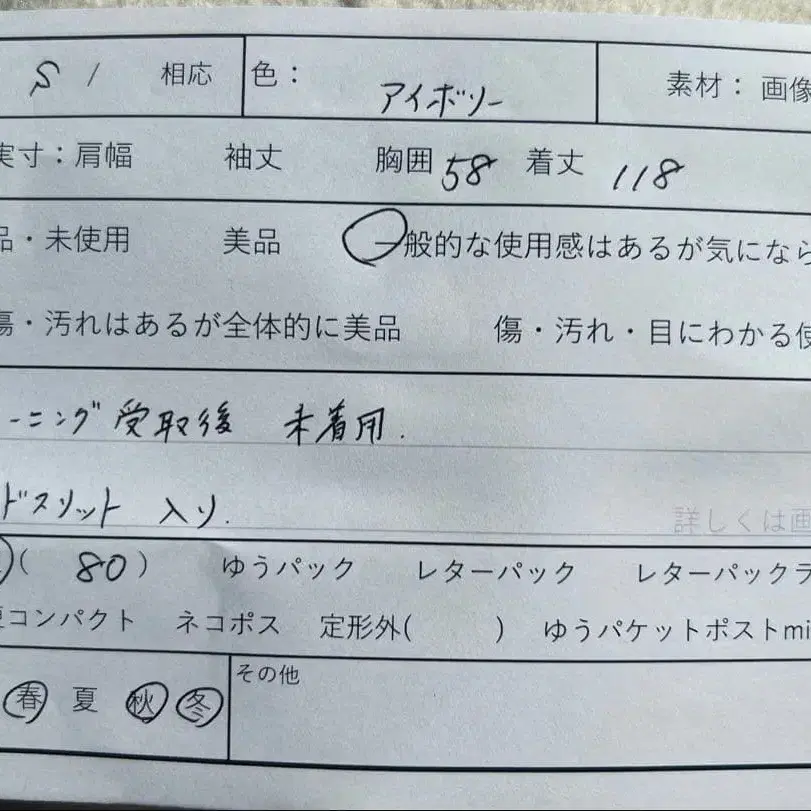 S / 相応 色： アイボリー 素材：画像
実寸：肩幅 袖丈 胸囲 58 着丈 118
品・未使用 美品 一般的な使用感はあるが気になら
傷・汚れはあるが全体的に美品 傷・汚れ・目にわかる使
ーニング受取後 未着用.
ドスリット 入り.
詳しくは画
( 80 ) ゆうパック レターパック レターパックラ
コンパクト ネコポス 定形外( ) ゆうパケットポストmi
春 夏 秋 冬 その他